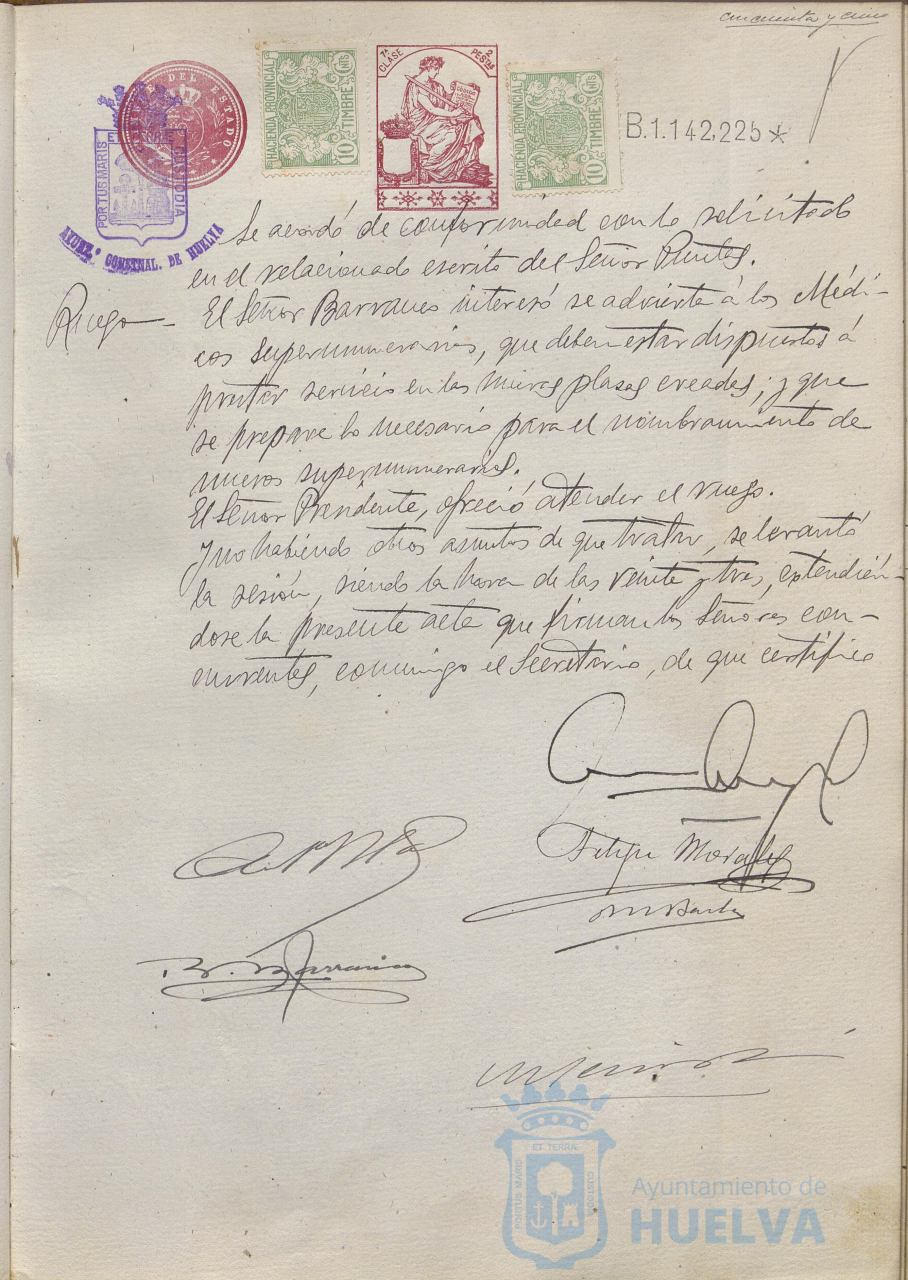 cincuenta y cinco
TIMBRE DEL ESTADO
PORTUS MARIS
ET TERRAE CUSTODIA
AYUNT.º CONSTNAL. DE HUELVA
HACIENDA PROVINCIAL
10 CNTS
TIMBRE
7ª CLASE
2 PESTAS
HACIENDA PROVINCIAL
10 CNTS
TIMBRE
B.1.142,225*
Se acordó de conformidad con lo solicitado
en el relacionado escrito del Señor Puntas.
Ruego
El Señor Barranco interesó se advierta á los Médi-
cos supernumerarios, que deben estar dispuestos á
prestar servicio en las nuevas plazas creadas; y que
se prepare lo necesario para el nombramiento de
nuevos supernumerarios.
El Señor Presidente, ofreció atender el ruego.
Y no habiendo otros asuntos de que tratar, se levantó
la sesión, siendo la hora de las veinte y tres, extendién-
dose la presente acta que firman los Señores con-
currentes, conmigo el Secretario, de que certifico
Felipe Morales
B. Barranco
ET TERRAE
PORTUS MARIS
CUSTODIA
Ayuntamiento de
HUELVA